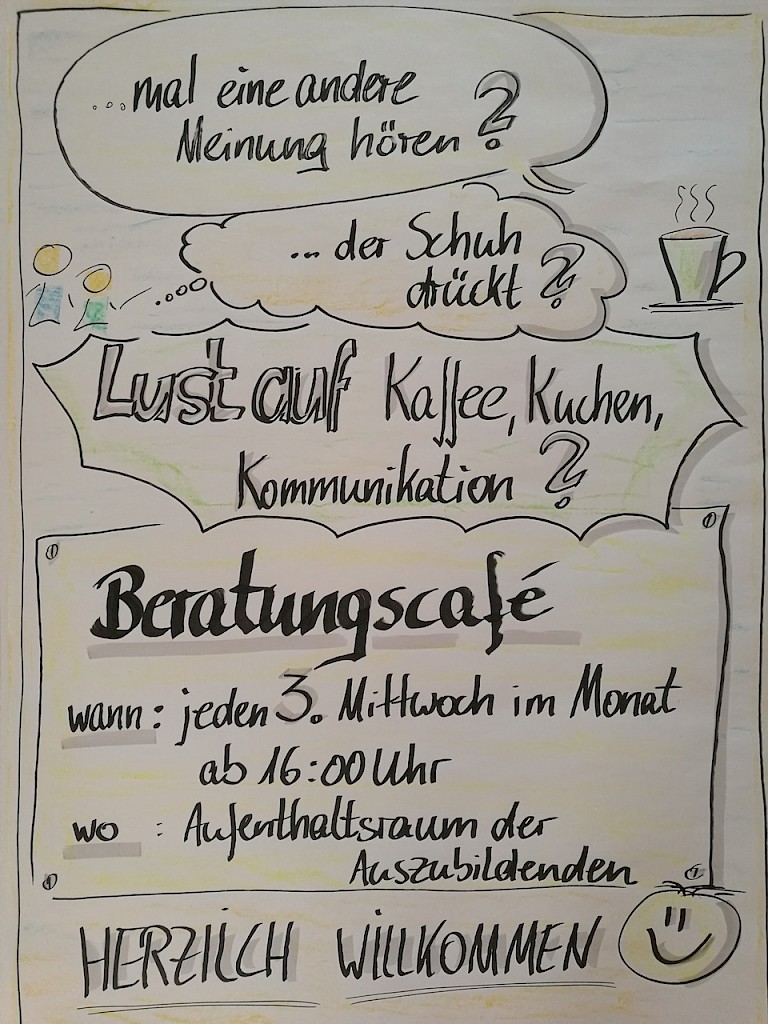 ...mal eine andere
Meinung hören?
... der Schuh
drückt?
Lust auf Kaffee, Kuchen,
Kommunikation?
Beratungscafé
wann: jeden 3. Mittwoch im Monat
ab 16:00 Uhr
wo : Aufenthaltsraum der
Auszubildenden
HERZLICH WILLKOMMEN